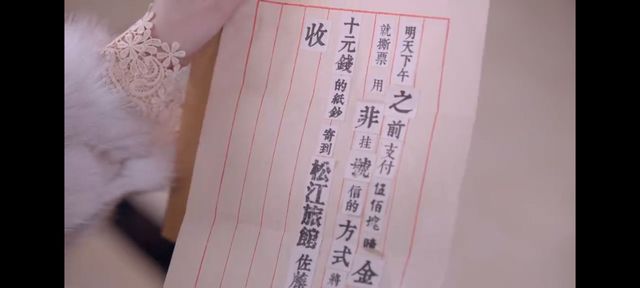 明天下午之前支付伍佰金
就撕票用非挂號信的方式將
十元錢的紙鈔寄到松江旅館佐藤
收